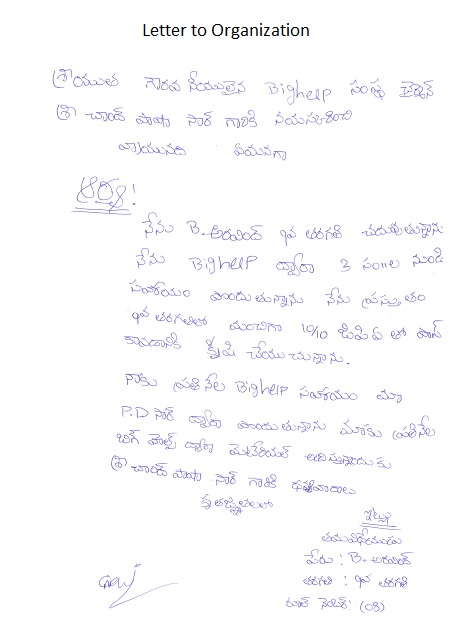 Letter to Organization
శ్రీయుత గౌరవ నీయులైన Bighelp సంస్థ చైర్మెన్
శ్రీ చాంద్ పాషా సార్ గారికి నమస్కరించి
వ్రాయునది ఏమనగా
ఆర్యా!
నేను B. అరవింద్ 9వ తరగతి చదువుతున్నాను
నేను BigheLP ద్వారా 3 సం॥ల నుండి
సహాయం పొందుతున్నాను నేను ప్రస్తుతం
9వ తరగతిలో మంచిగా 10/10 జిపిఏ తో పాస్
కావడానికి కృషి చేయుచున్నాను.
నాకు ప్రతినేల Bighelp సహాయం మా
P.D సార్ ద్వారా పొందుతున్నాను మాకు ప్రతినేల
బిగ్ హెల్ప్ ద్వారా మెటీరియల్ అందిస్తున్నందుకు
శ్రీ చాంద్ పాషా సార్ గారికి ధన్యవాదాలు
కృతజ్ఞతలతో
ఇట్లు
తమవిధేయుడు
పేరు : B. అరవింద్
తరగతి : 9వ తరగతి
రూల్ నెంబర్: (08)